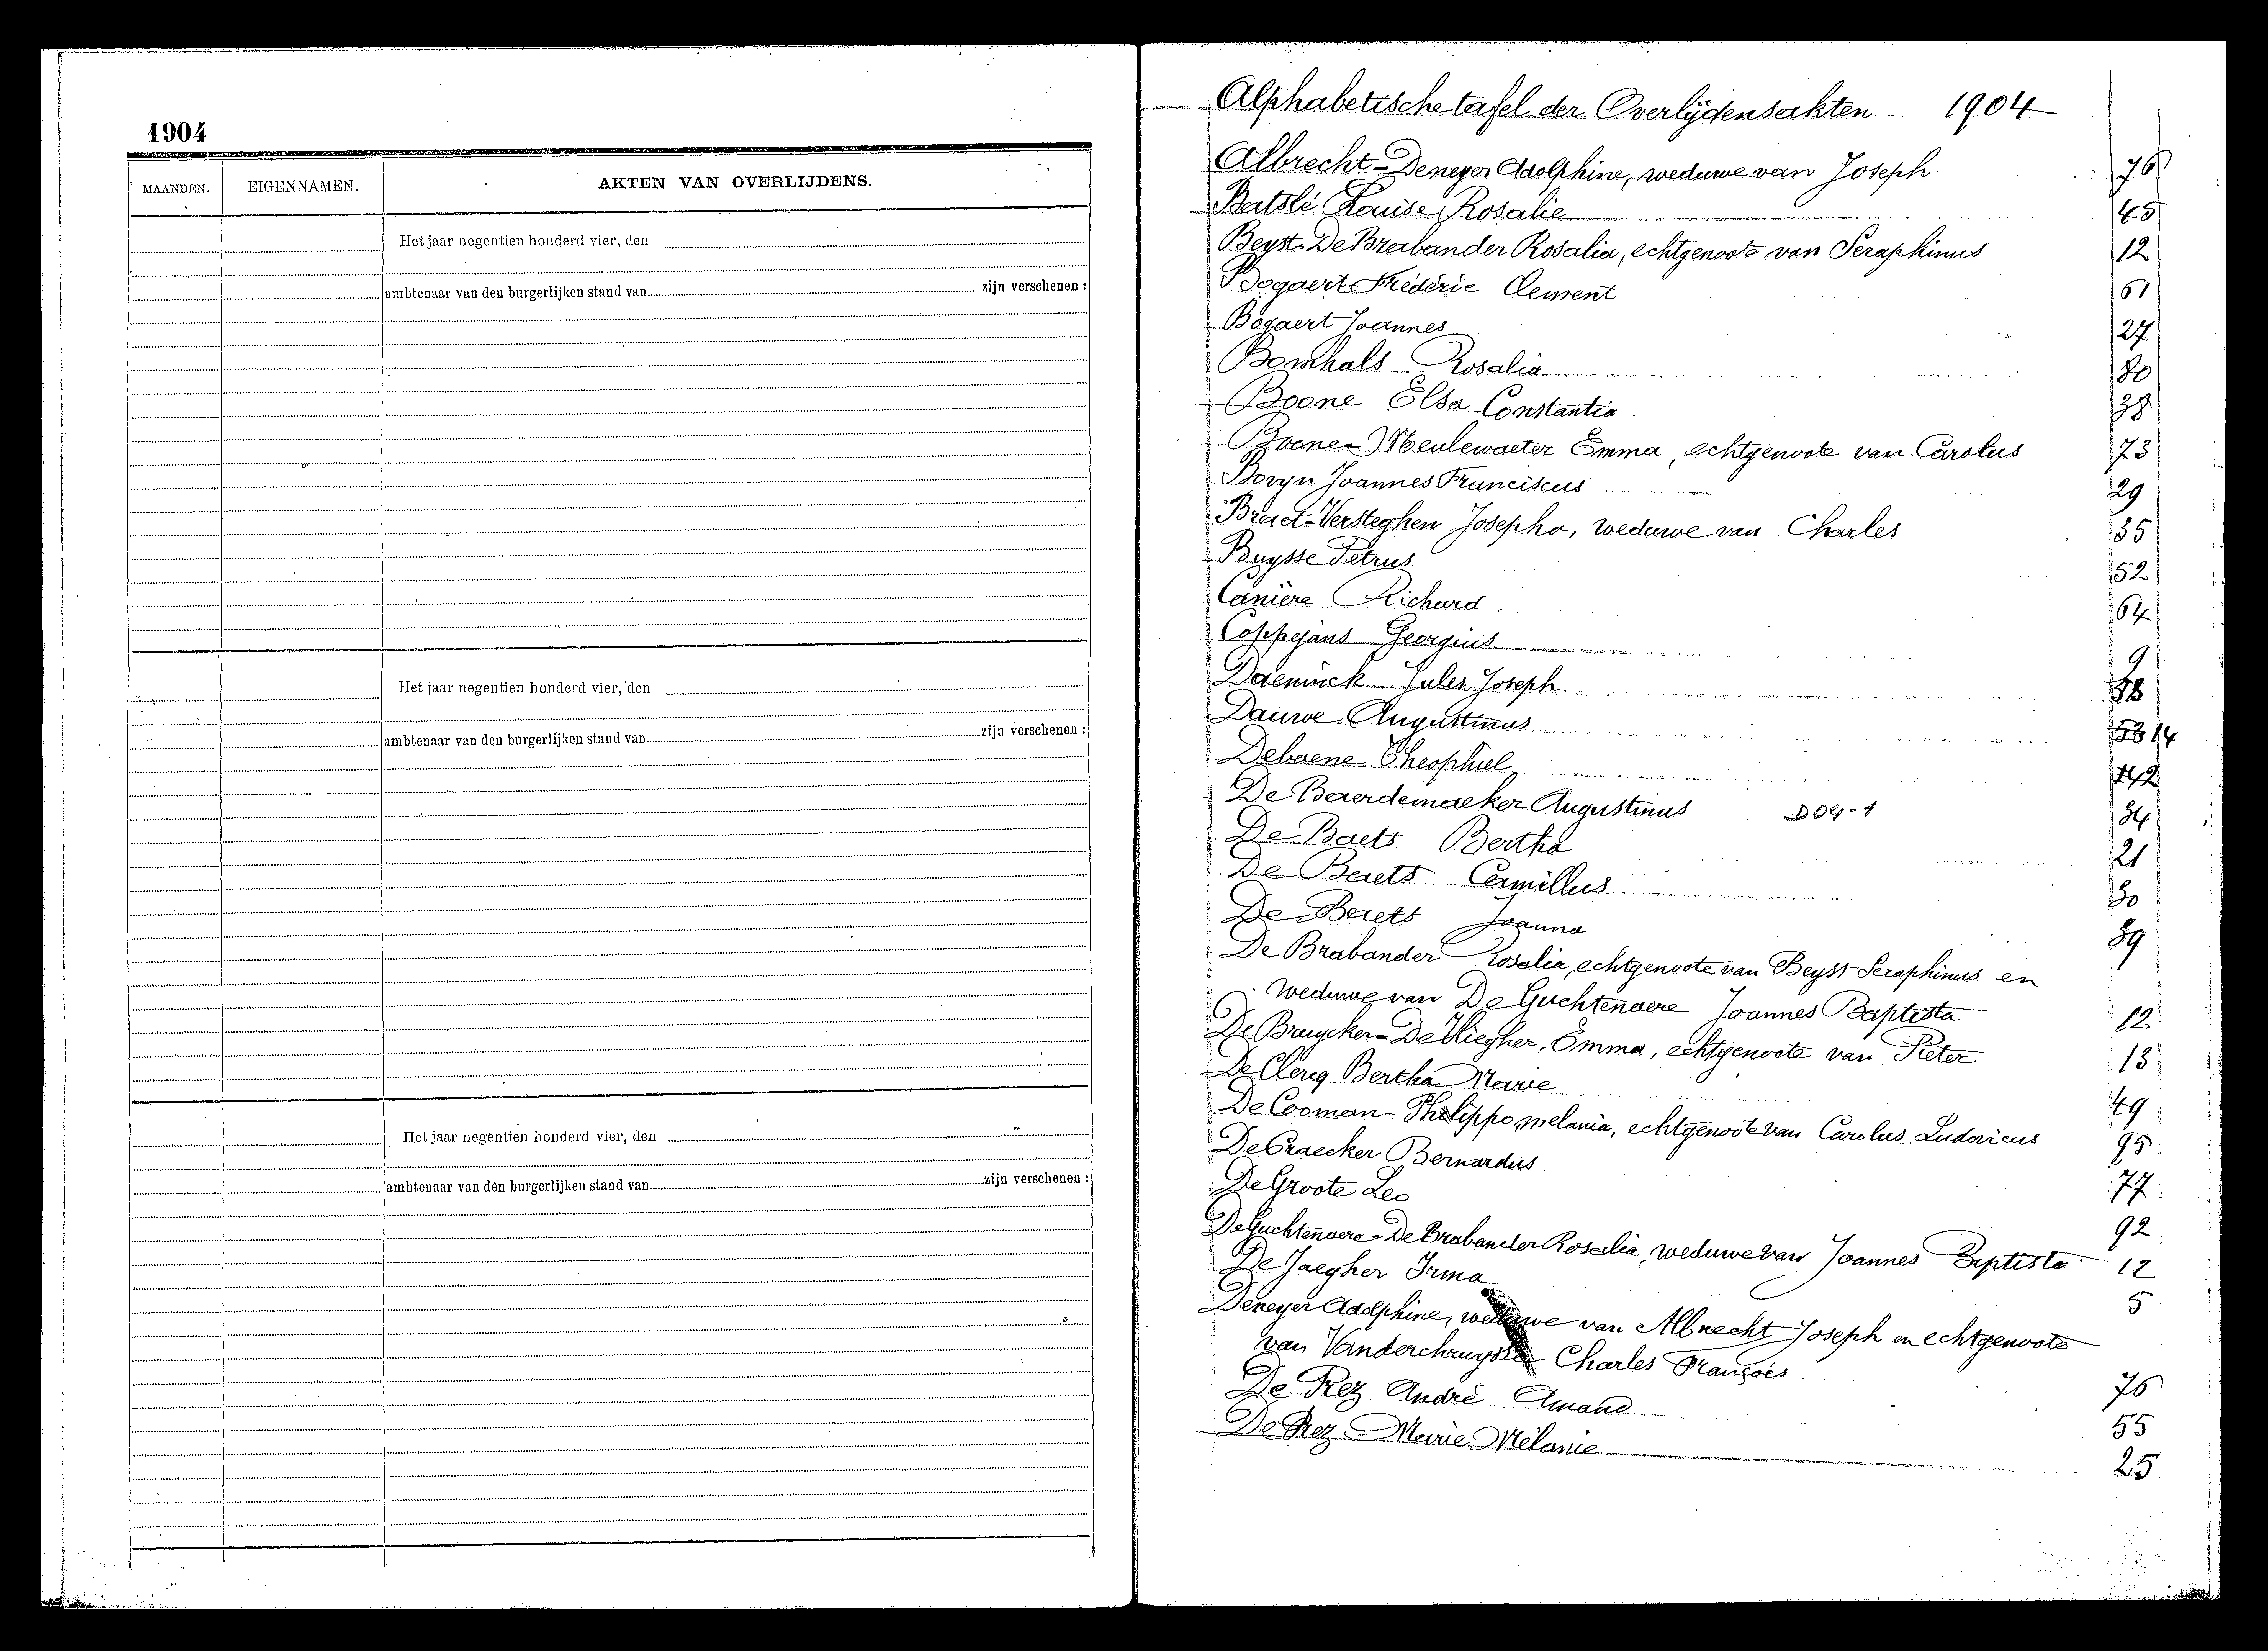 1904
MAANDEN. EIGENNAMEN. AKTEN VAN OVERLIJDENS.
Het jaar negentien honderd vier, den
ambtenaar van den burgerlijken stand van zijn verschenen :
Het jaar negentien honderd vier, den
ambtenaar van den burgerlijken stand van zijn verschenen :
Het jaar negentien honderd vier, den
ambtenaar van den burgerlijken stand van zijn verschenen :
Alphabetische tafel der Overlijdensakten 1904
Albrecht-Deneyer Adolphine, weduwe van Joseph. 76
Batslé Louise Rosalie 45
Beyst-De Brabander Rosalia, echtgenoote van Seraphinus 12
Bogaert Fréderic Clement 61
Bogaert Joannes 27
Bomhals Rosalia 80
Boone Elsa Constantia 38
Boone-Meulewaeter Emma, echtgenoote van Carolus 73
Boryn Joannes Franciscus 29
Braet-Versteghen Josepha, weduwe van Charles 35
Buysse Petrus 52
Canière Richard 64
Coppejans Georgius 9
Daeninck Jules Joseph.
Dauwe Augustinus 14
Debaene Theophiel 42
De Baerdemaeker Augustinus D04-1 34
De Baets Bertha 21
De Baets Camillus 30
De Baets Joanna 39
De Brabander Rosalia, echtgenoote van Beyst Seraphinus en
weduwe van De Guchtenaere Joannes Baptista 12
De Bruycker-De Vliegher, Emma, echtgenoote van Pieter 13
De Clercq Bertha Marie 49
De Cooman-Philippo, melania, echtgenoote van Carolus Ludovicus 95
De Craecker Bernardus 77
De Groote Leo 92
De Guchtenaere-De Brabander Rosalia, weduwe van Joannes Baptista 12
De Jaegher Irma 5
Deneyer Adolphine, weduwe van Albrecht Joseph en echtgenoote
van Vanderchruysse Charles François 76
De Prez André Amand 55
De Prez Marie Mélanie 25